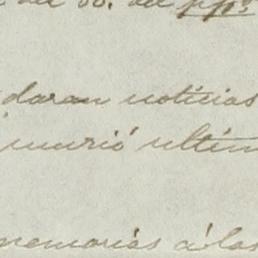 del
daran noticias
murió ultim
memorias á las